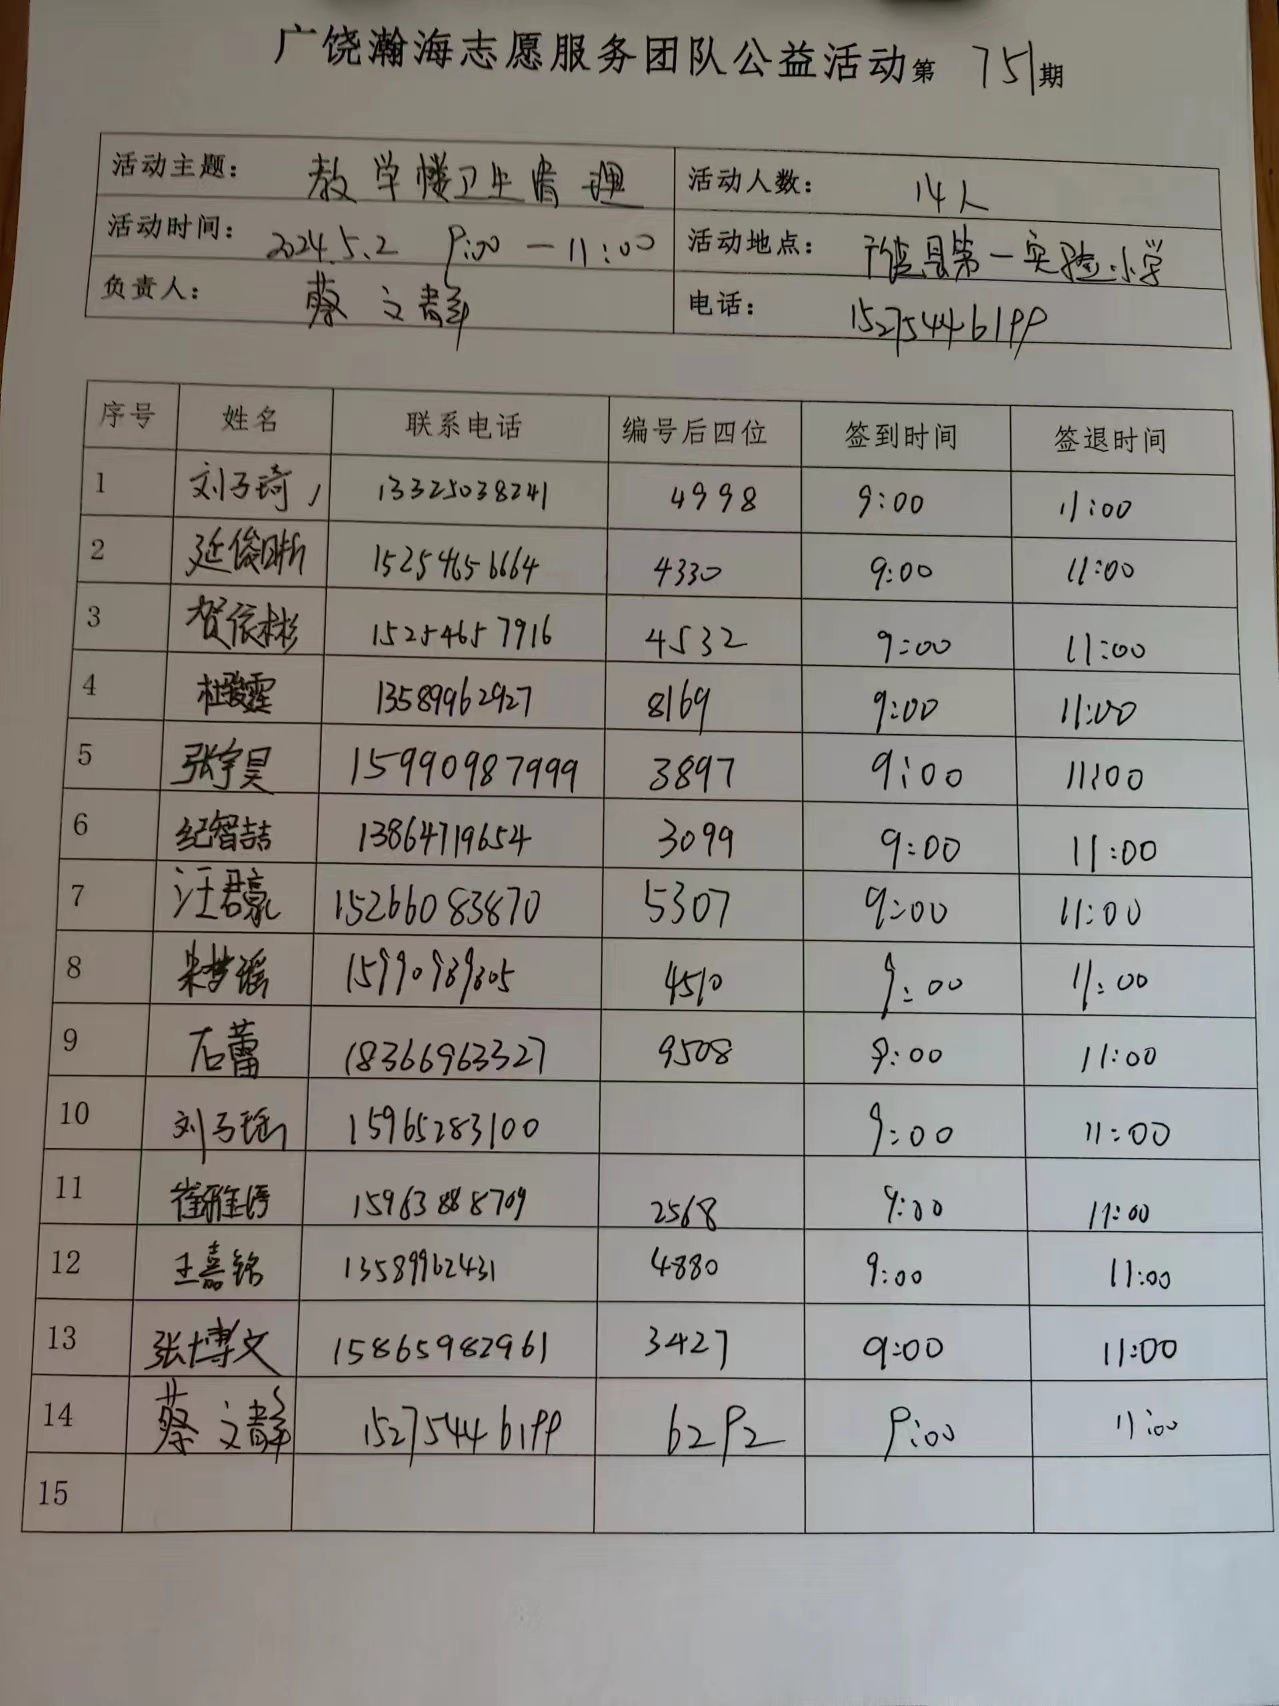 广饶瀚海志愿服务团队公益活动第 751期
活动主题： 教学楼卫生清理 活动人数： 14人
活动时间： 2024.5.2 9:00—11:00 活动地点： 广饶县第一实验小学
负责人： 蔡文静 电话： 15275446199
序号 姓名 联系电话 编号后四位 签到时间 签退时间
1 刘子琦 13325038241 4998 9:00 11:00
2 延俊昕 15254656664 4330 9:00 11:00
3 贺依彬 15254657916 4532 9:00 11:00
4 杜骏霆 13589962927 8169 9:00 11:00
5 张宇昊 15990987999 3897 9:00 11:00
6 纪智喆 13864719654 3099 9:00 11:00
7 汪君豪 15266083870 5307 9:00 11:00
8 梦谣 15990989805 4510 9:00 11:00
9 石蕾 18366963327 9508 9:00 11:00
10 刘子瑶 15965283100 9:00 11:00
11 崔雅 15963888709 2568 9:00 11:00
12 王嘉铭 13589962431 4880 9:00 11:00
13 张博文 15865982961 3427 9:00 11:00
14 蔡文静 15275446199 6292 9:00 11:00
15